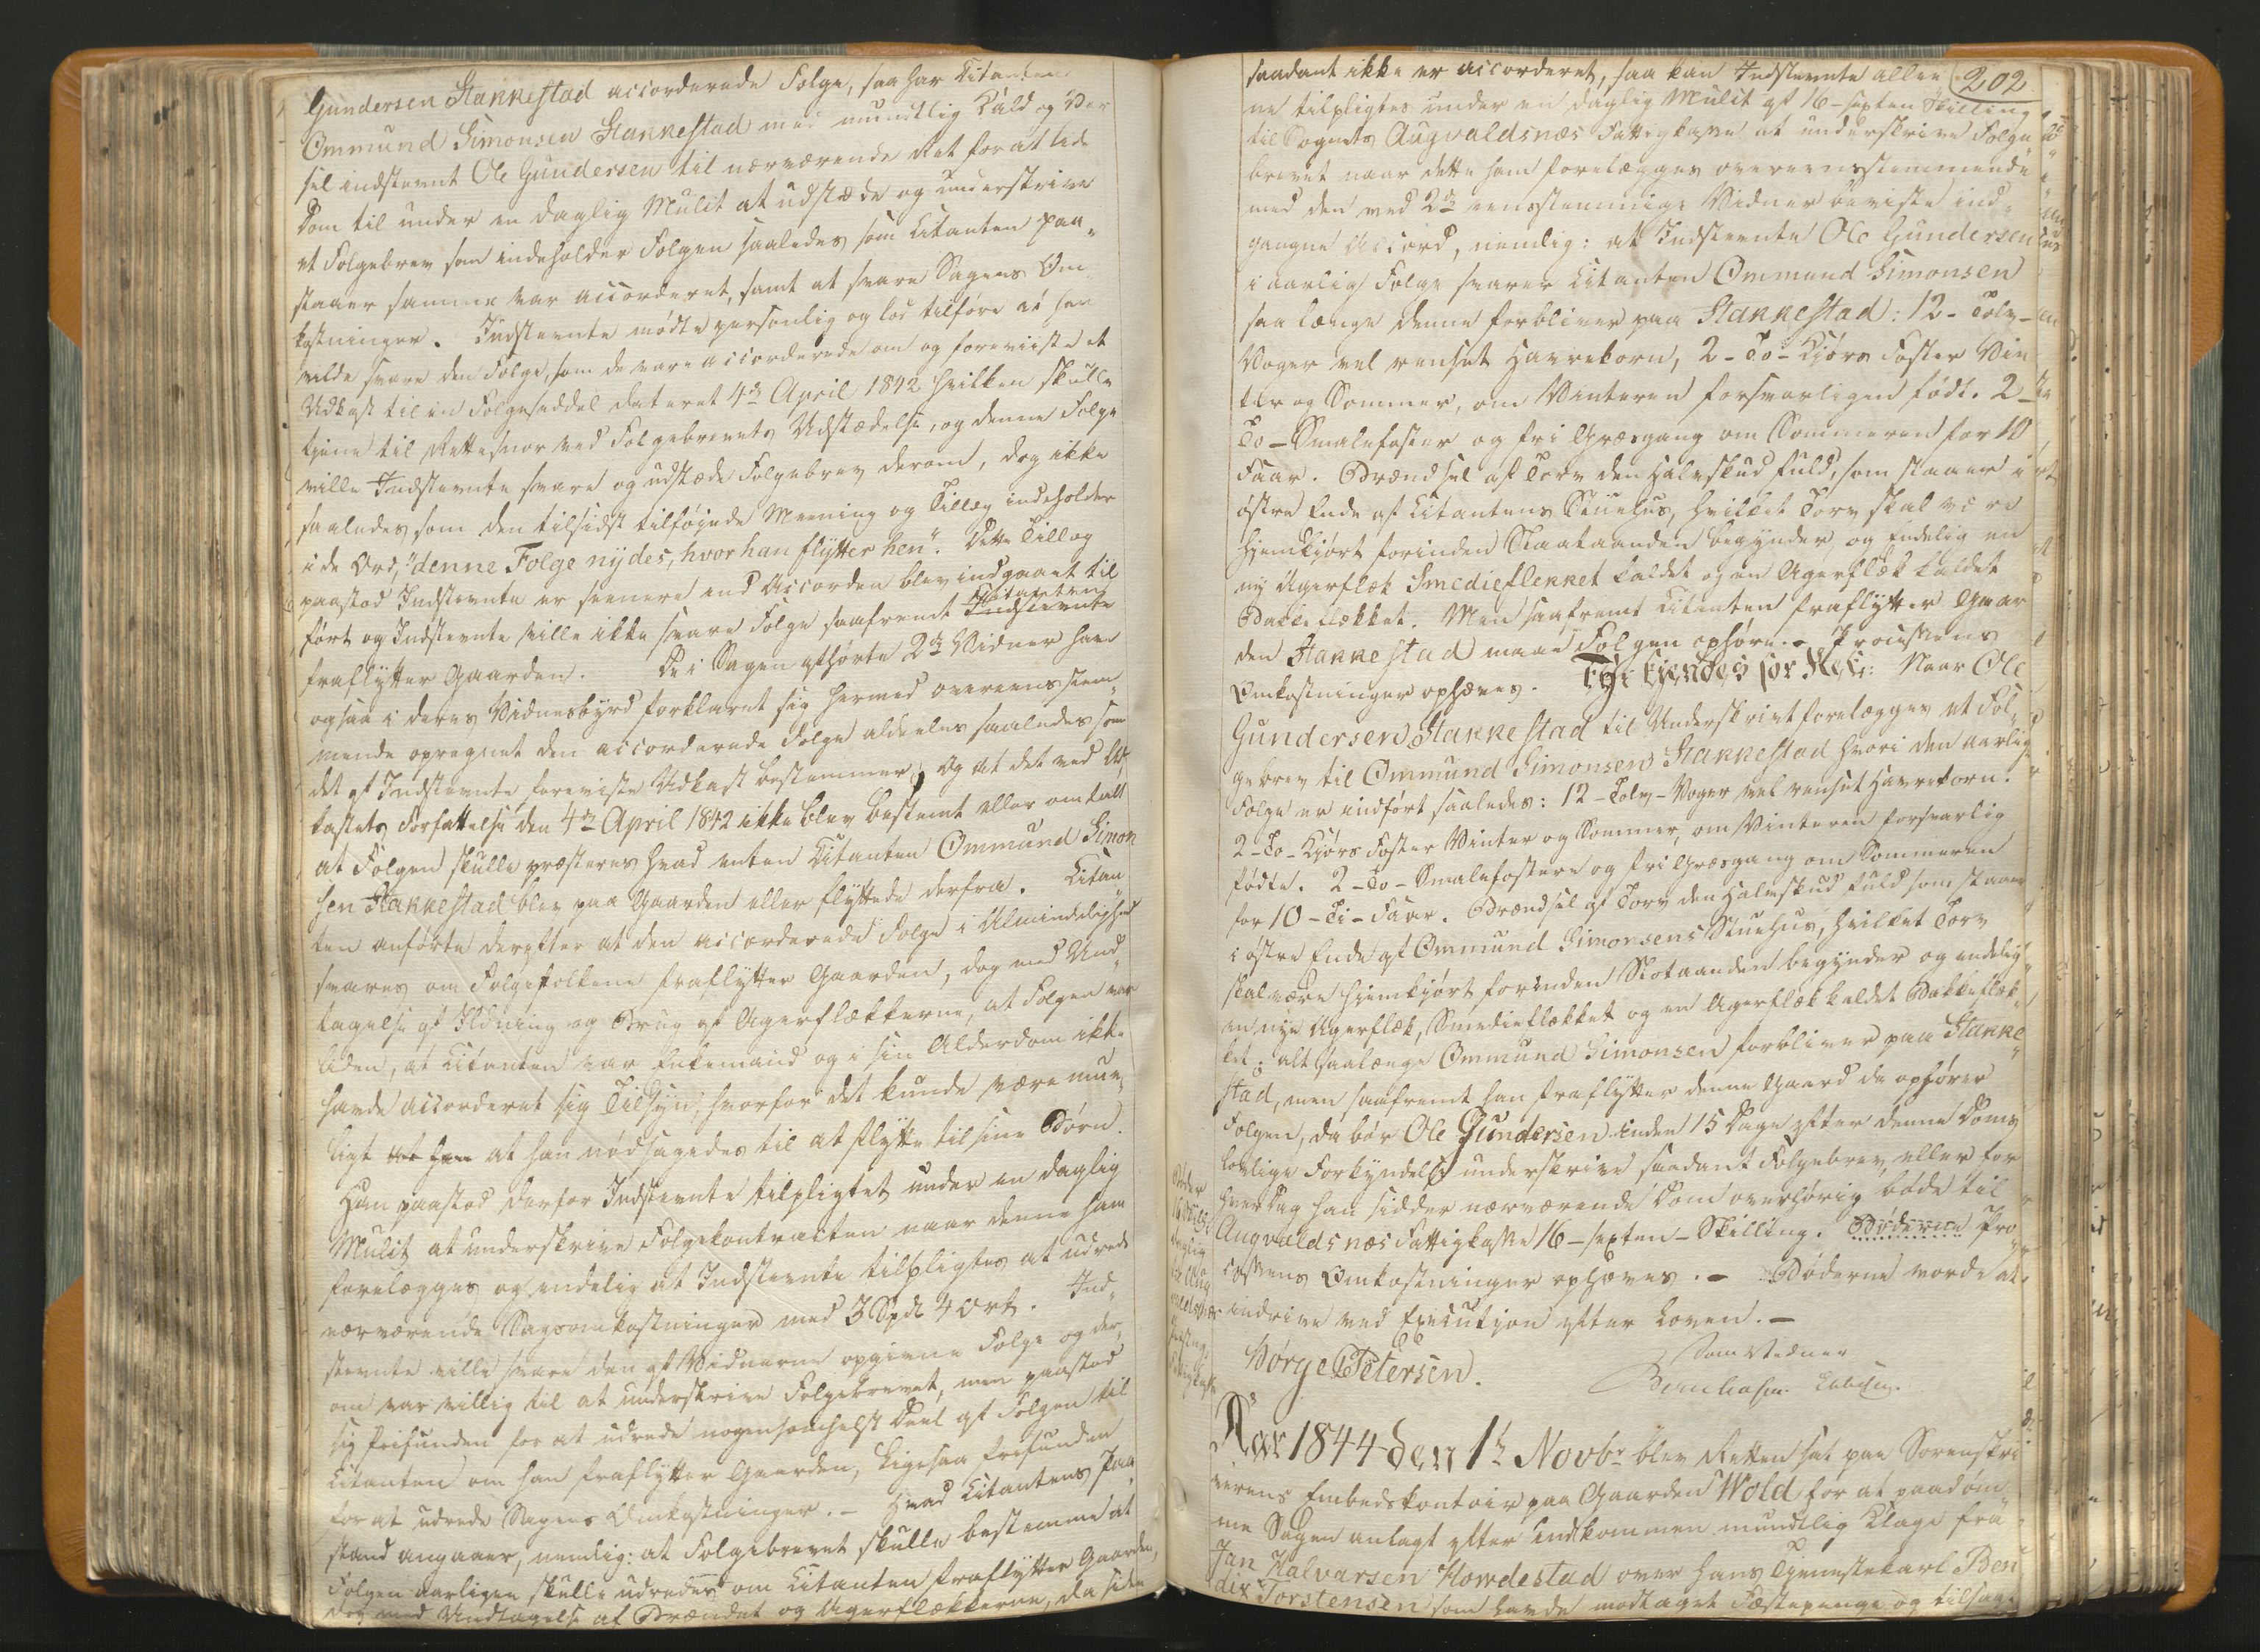 Gundersen Stakkestad accorderede Folge, saa har Citanten
Ommund Simonsen Stakkestad med mundtlig Kald og Var
sel indstevnt Ole Gundersen til nærværende Ret for at lide
Dom til under en daglig Mulct at udstæde og underskrive
et Folgebrev som indeholder Folgen saaledes som Citanten paa„
staaer samme var accorderet, samt at svare Sagens Om„
kostninger. Indstevnte mødte personlig og lod tilføre at han
vilde svare den Folge, som de vare accorderede om og foreviiste et
Udkast til en Folgeseddel dateret 4de April 1842 hvilken skulle
tjene til Rettesnor ved Folgebrevets Udstædelse, og denne Folge
ville Indstevnte svare og udstæde Folgebrev derom, dog ikke
saaledes som den tilsidst tilføjede Meening og Tillæg indeholder
i de Ord, "denne Folge nydes, hvor han flytter hen". Dette Tillæg
paastod Indstevnte er seenere end Accorden blev indgaaet til
ført og Indstevnte ville ikke svare Folge saafremt Indstevnte Citanten
fraflytter Gaarden. De i Sagen afhørte 2de Vidner have
ogsaa i deres Vidnesbyrd forklaret sig hermed overeensstem„
mende opregnet den accorderede Folge aldeeles saaledes som
det af Indstevnte foreviste Udkast bestemmer, og at det ved Ud„
kastets Forfattelse den 4de April 1842 ikke blev bestemt eller omtalt
at Folgen skulle præsteres hvad enten Citanten Ommund Simon
sen Stakkestad blev paa Gaarden eller flyttede derfra. Citan„
ten anførte derefter at den accorderede Folge i Almindelighed
svares om Folgefolkene fraflytter Gaarden, dog med Und„
tagelse af Ildning og Brug af Agerflækkerne, at Folgen var
liden, at Citanten var Enkemand og i sin Alderdom ikke
havde accorderet sig Tilsyn, hvorfor det kunde være mue„
ligt at han at han nødsagedes til at flytte til sine Børn.
Han paastod derfor Indstevnte tilpligtet under en daglig
Mulct at underskrive Folgekontracten naar denne ham
forelægges og endelig at Indstevnte tilpligtes at udrede
nærværende Sagsomkostninger med 3 Spd 4 Ort. Ind„
stevnte ville svare den af Vidnerne opgivne Folge og der„
om var villig til at underskrive Folgebrevet, men paastod
sig frifunden for at udrede nogensomhelst Deel af Folgen til
Citanten om han fraflytter Gaarden, ligesaa frifunden
for at udrede Sagens Omkostninger. – Hvad Citantens Paa„
stand angaaer, nemlig: at Folgebrevet skulle bestemme at
Folgen aarligen skulle udredes om Citanten fraflytter Gaarden,
dog med Undtagelse af Brændet og Agerflækkerne, da siden
202
saadant ikke er accorderet, saa kan Indstevnte allee
ne tilpligtes under en daglig Mulct af 16 – sexten Skilling
til Sognets Augvaldsnæs Fattigkasse at underskrive Folge„
brevet naar dette ham forelægges overeensstemmende
med den ved 2de eensstemmige Vidner beviste ind„
gangne Accord, nemlig: at Indstevnte Ole Gundersen
i aarlig Folge svarer Citanten Ommund Simonsen
saa længe denne forbliver paa Stakkestad: 12 – Tolv –
Voger vel renset Havrekorn, 2 – To – Kjørs Foster Vin
ter og Sommer, om Vinteren forsvarligen født. 2
To – Smalefoster og fri Græsgang om Sommeren for 10
Faar. Brændsel af Torv den Halvskud fuld, som staaer i
østre Ende af Citantens Stuehus, hvilket Torv skal være
hjemkjørt forinden Slaataanden begynder og endelig en
ny Agerflæk Smedieflekket kaldet og en Agerflæk kaldet
Bakkeflækket. Men saafremt Citanten fraflytter Gaar
den Stakkestad maae Folgen ophøre. – Processens
Omkostninger ophæves. Thi kjendes for Ret: Naar Ole
Gundersen Stakkestad til Underskrivt forelægges et Fol„
gebrev til Ommund Simonsen Stakkestad hvori den aarlige
Folge er indført saaledes: 12 – Tolv – Voger vel renset Havrekorn.
2 – To – Kjørs Foster Vinter og Sommer, om Vinteren forsvarlig
fødte. 2 – To – Smalefostere og fri Græsgang om Sommeren
for 10 – Ti – Faar. Brændsel af Torv den Halvskud fuld som staaer
i østre Ende af Ommund Simonsens Stuehus, hvilket Torv
skal være hjemkjørt forinden Slotaanden begynder og endelig
en nye Agerflæk, Smedieflækket og en Agerflæk kaldet Bakkeflæk„
ket; alt saalænge Ommund Simonsen forbliver paa Stakke„
stad, men saafremt han fraflytter denne Gaard da ophører
Folgen, da bør Ole Gundersen inden 15 Dage efter denne Doms
lovlige Forkyndelse underskrive saadant Folgebrev, eller for
hver Dag han sidder nærværende Dom overhørig bøde til
Augvaldsnæs Fattigkasse 16 – sexten – Skilling. Bøderne Pro„
cessens Omkostninger ophæves. – Bøderne vorde at
inddrive ved Execution efter Loven. –
Som Vidner
Børge Petersen.
Aar 1844 den 1te Novbr blev Retten sat paa Sorenskri
verens Embedskontoir paa Gaarden Wold for at paadøm„
me Sagen anlagt efter indkommen mundtlig Klage fra
Jan Halvarsen Howdestad over hans Tjenestekarl Ben
dix Torstensen som havde modtaget Fæstepenge og tilsag